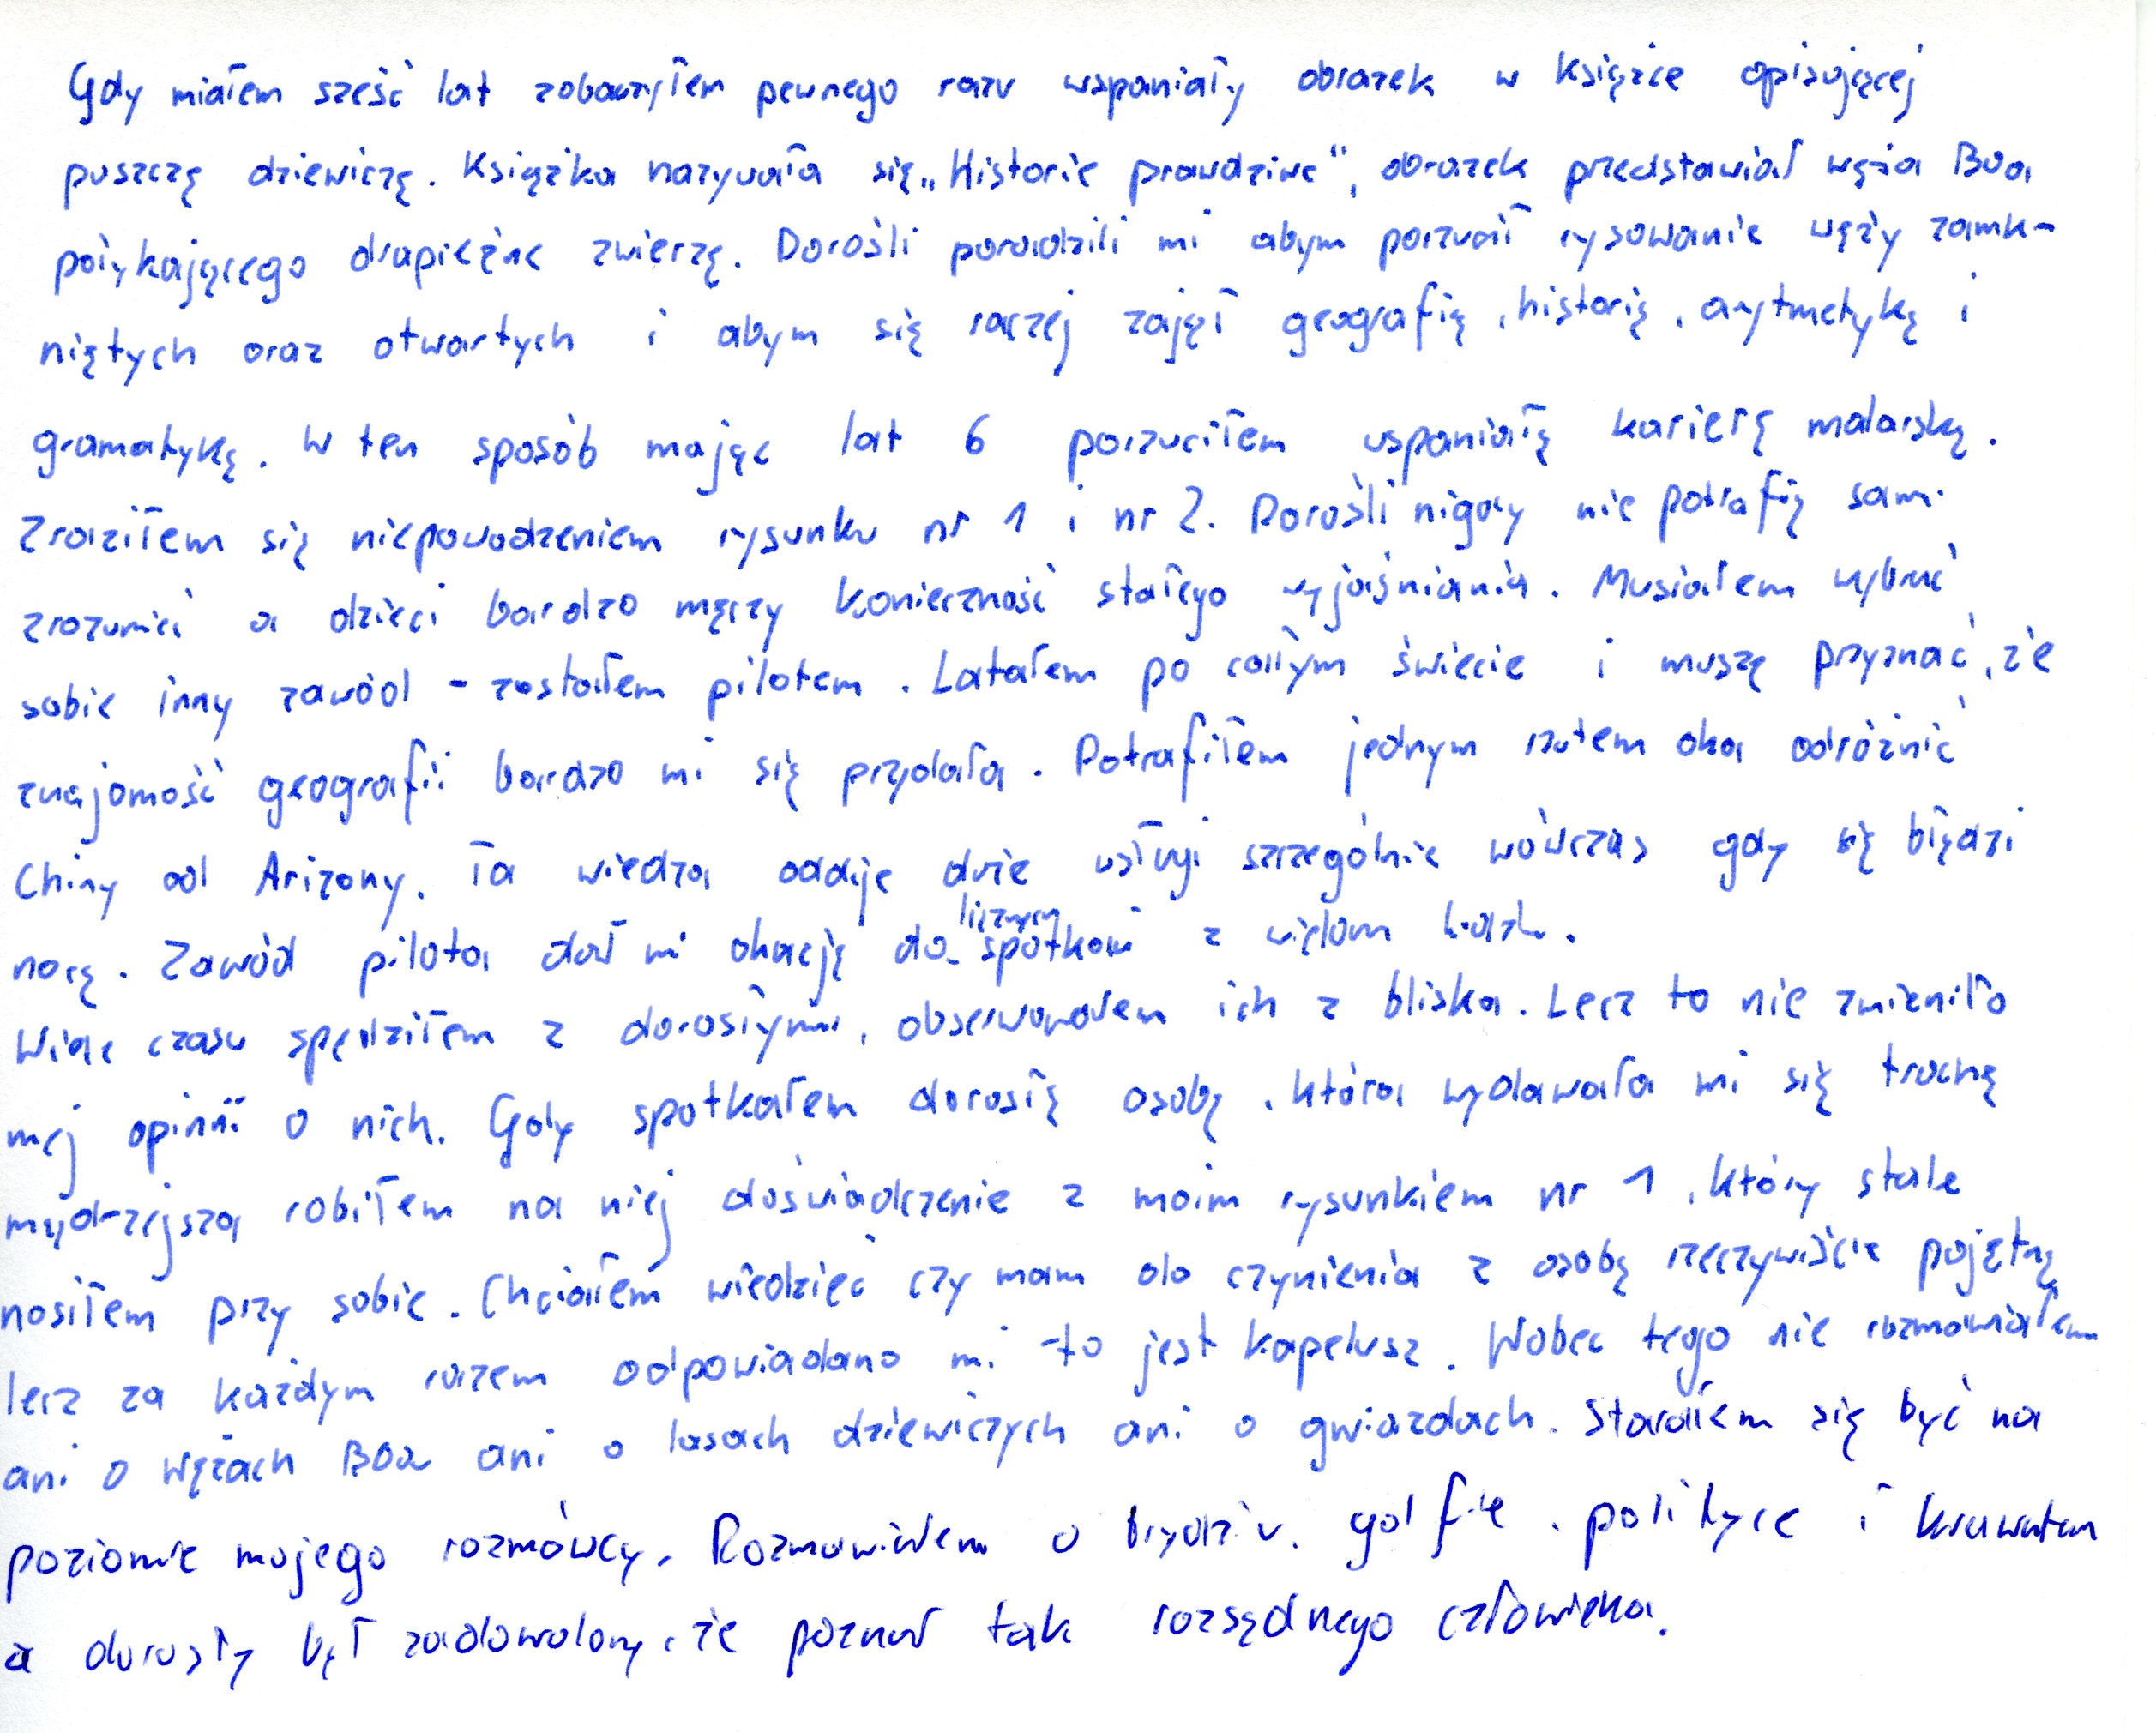 Gdy miałem sześć lat zobaczyłem pewnego razu wspaniały obrazek w książce opisującej
puszczę dziewiczą. Książka nazywała się „Historie prawdziwe", obrazek przedstawiał węża Boa
połykającego drapieżne zwierzę. Dorośli poradzili mi abym porzucił rysowanie węży zamk-
niętych oraz otwartych i abym się raczej zajął geografią, historią, arytmetyką i
gramatyką. W ten sposób mając lat 6 porzuciłem wspaniałą karierę malarską.
Zraziłem się niepowodzeniem rysunku nr 1 i nr 2. Dorośli nigdy nie potrafią sami
zrozumieć a dzieci bardzo męczy konieczność stałego wyjaśniania. Musiałem wybrać
sobie inny zawód - zostałem pilotem. Latałem po całym świecie i muszę przyznać, że
znajomość geografii bardzo mi się przydała. Potrafiłem jednym rzutem oka odróżnić
Chiny od Arizony. Ta wiedza oddaje duże usługi szczególnie wówczas gdy się błądzi
nocą. Zawód pilota dał mi okazję do licznych spotkań z wieloma ludźmi.
Wiele czasu spędziłem z dorosłymi, obserwowałem ich z bliska. Lecz to nie zmieniło
mej opinii o nich. Gdy spotkałem dorosłą osobę, która wydawała mi się trochę
mądrzejsza robiłem na niej doświadczenie z moim rysunkiem nr 1, który stale
nosiłem przy sobie. Chciałem wiedzieć czy mam do czynienia z osobą rzeczywiście pojętną
lecz za każdym razem odpowiadano mi -to jest kapelusz. Wobec tego nie rozmawiałem
ani o wężach Boa ani o lasach dziewiczych ani o gwiazdach. Starałem się być na
poziomie mojego rozmówcy. Rozmawiałem o brydżu, golfie, polityce i krawatach
a dorosły był zadowolony, że poznał tak rozsądnego człowieka.